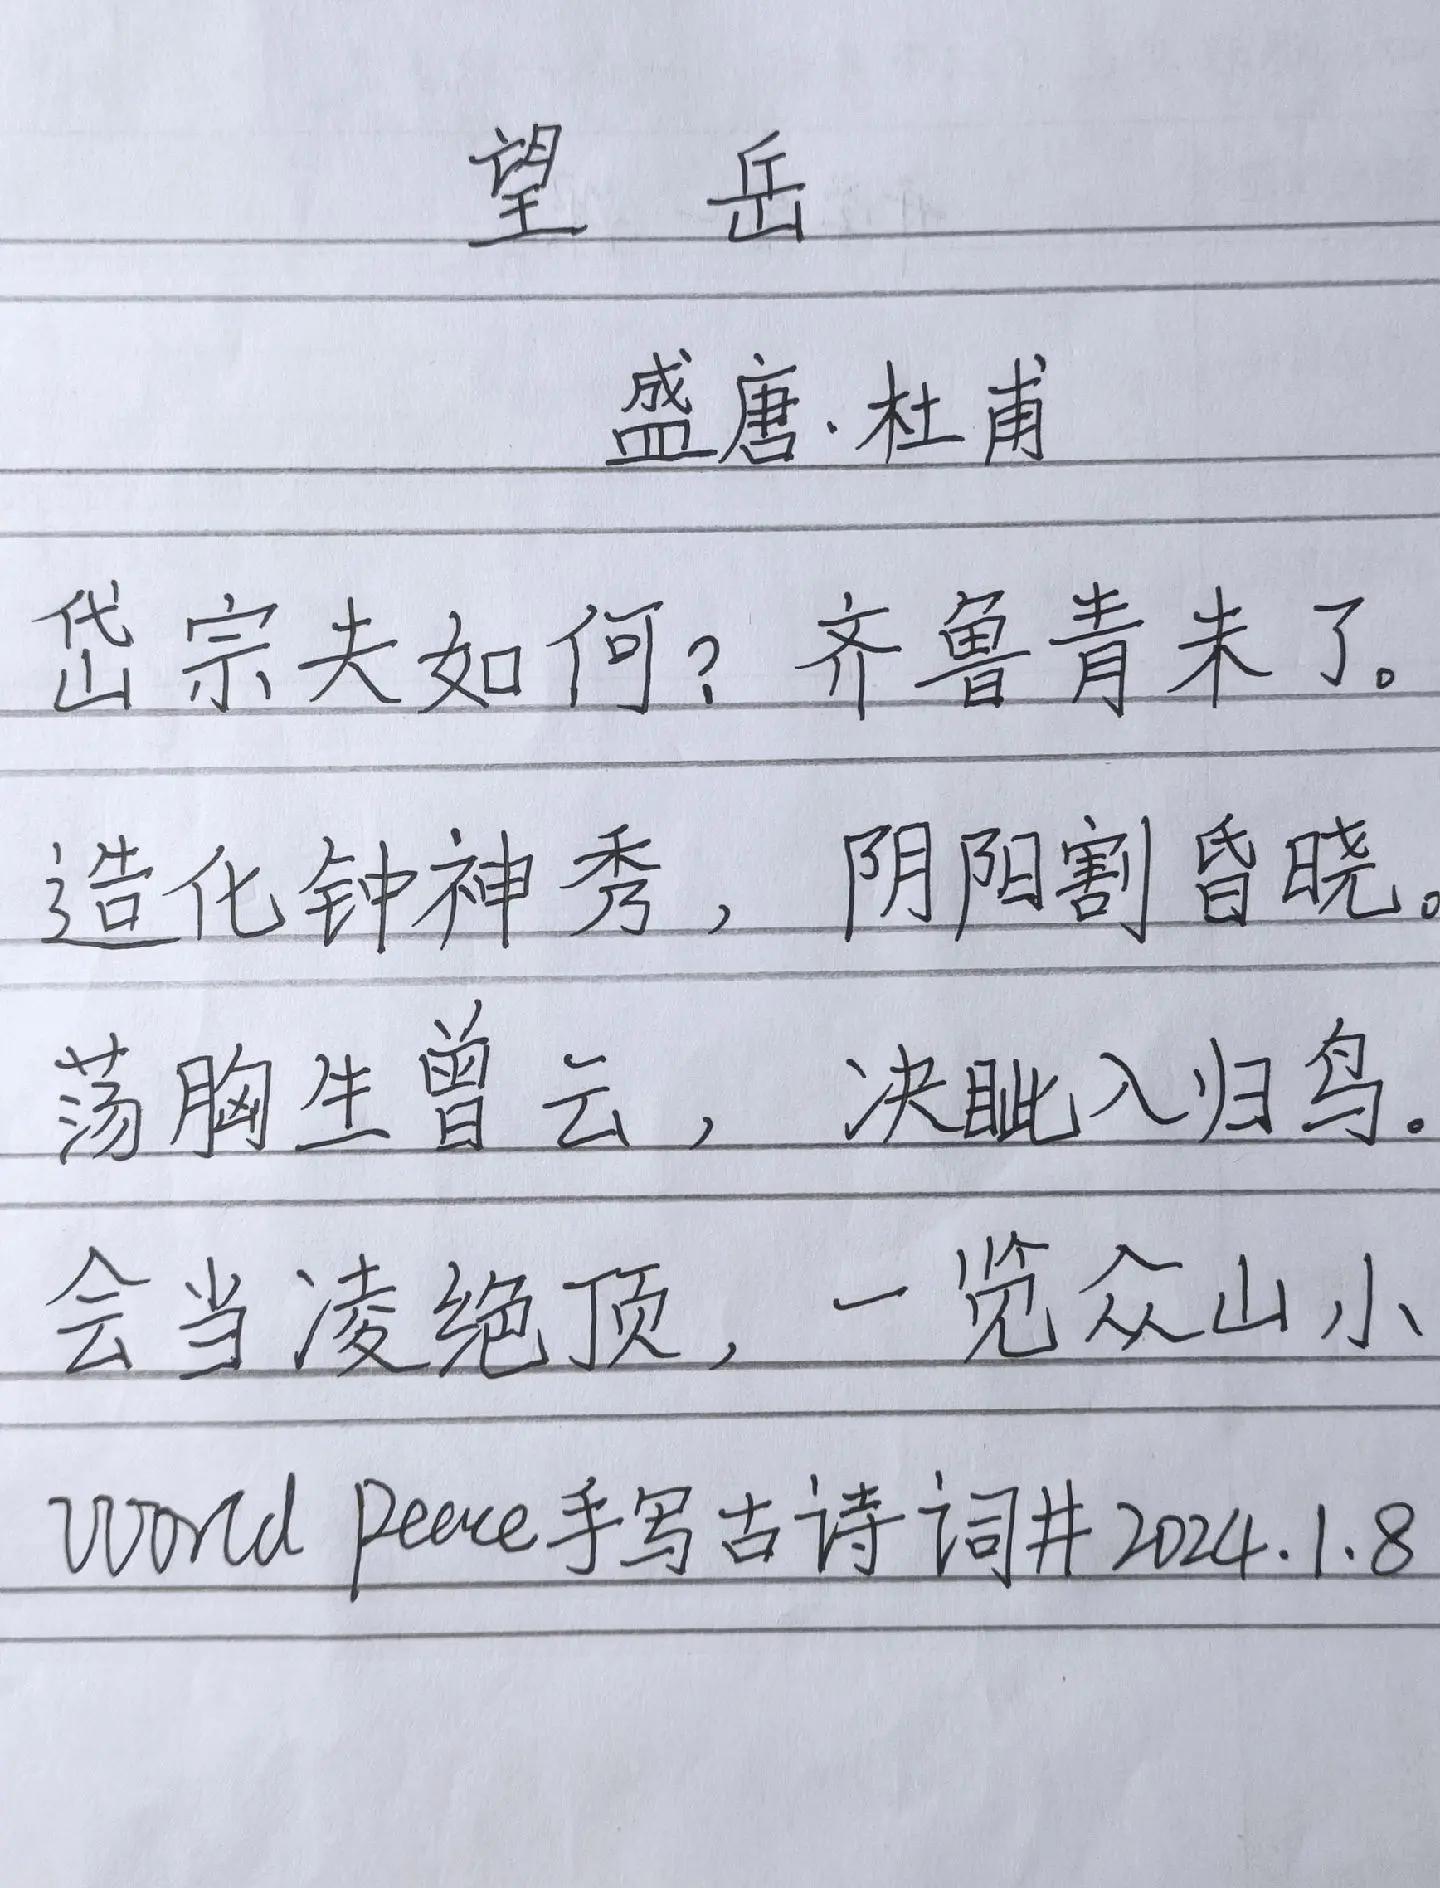 望岳
盛唐·杜甫
岱宗夫如何？齐鲁青未了。
造化钟神秀，阴阳割昏晓。
荡胸生曾云，决眦入归鸟。
会当凌绝顶，一览众山小
World peace手写古诗词井2024.1.8